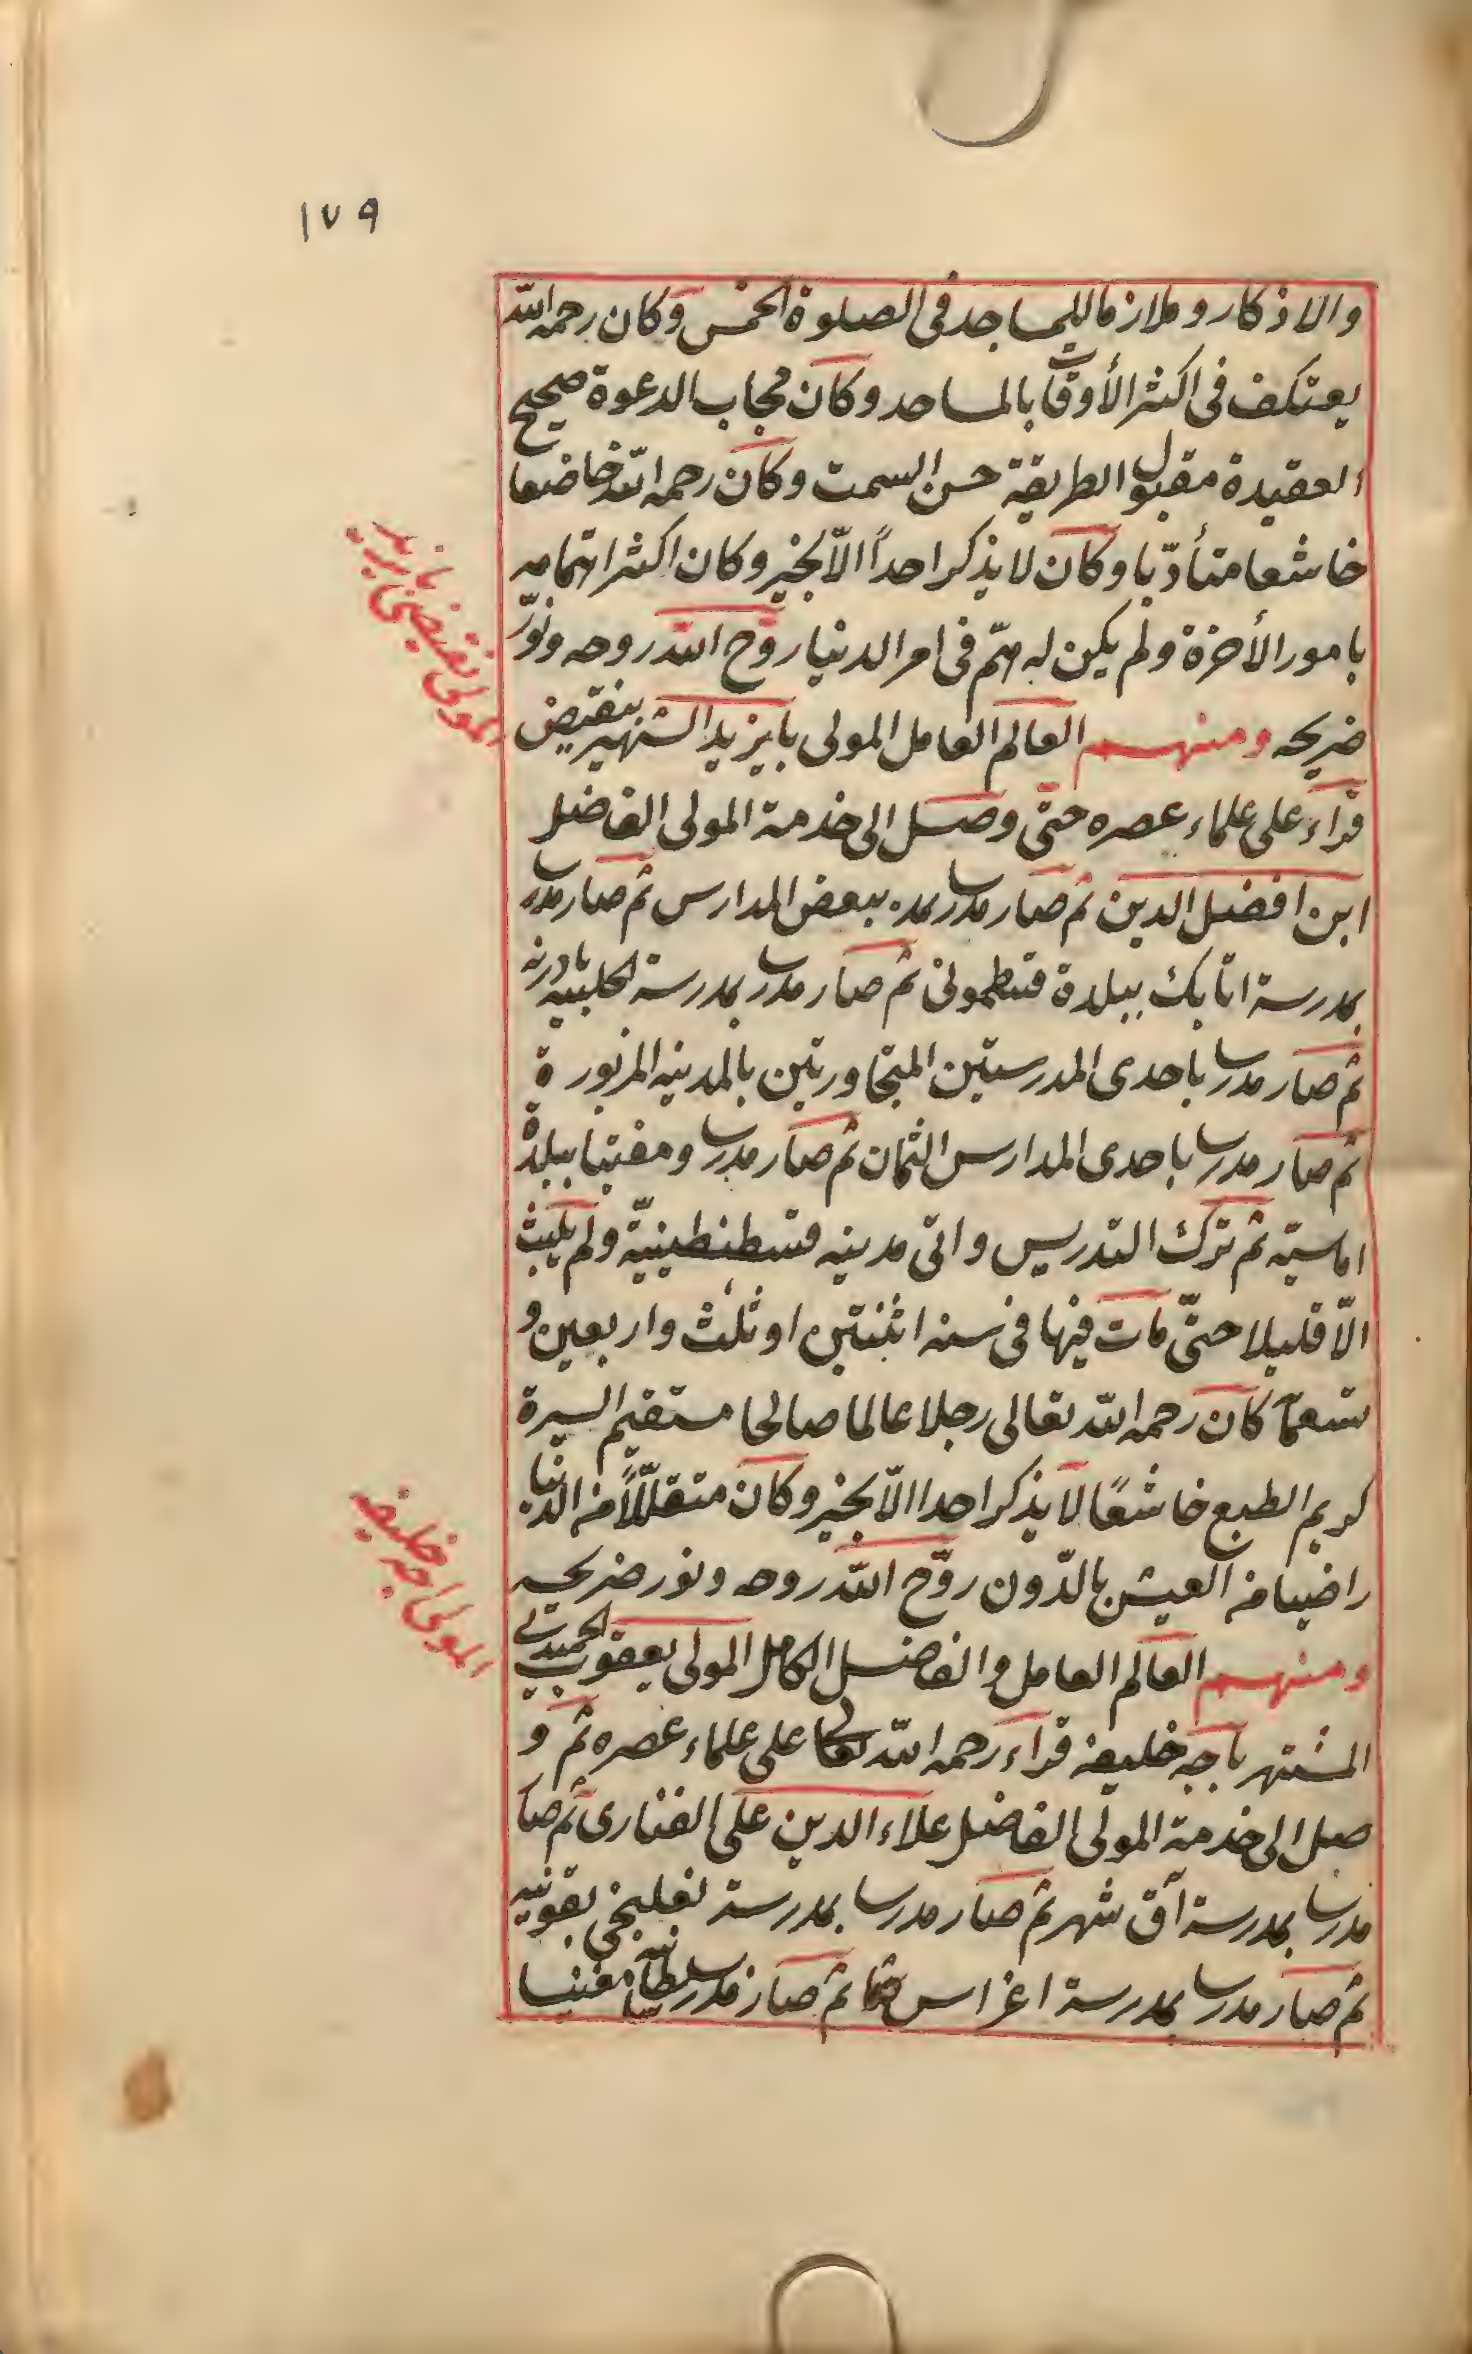 ١٧٩
والاذكار وملازما للمساجد فى الصلوة الخمس وكان رحمه الله
يعتكف فى اكثر الأوقات بالمساجد وكان مجاب الدعوة صحيح
العقيدة مقبول الطريقة حسن السمت وكان رحمه الله خاضعا
خاشعا متأدّبا وكان لا يذكر احداً الاّ بخير وكان اكثر اهتمامه
بامور الأخرة ولم يكن له همّ فى امر الدنيا روّح الله روحه ونوّر
ضريحه ومنهم العالم العامل المولى بايزيد الشهير بنقيضى
المولى نقيضى بايزيد
قراء على علماء عصره حتّى وصل الى خدمة المولى الفاضل
ابن افضل الدين ثم صار مدرسا ببعض المدارس ثم صار مدرسا
بمدرسة اتابك ببلدة قسطمونى ثم صار مدرسا بمدرسة الحلبيه بادرنه
ثم صار مدرسا باحدى المدرستين المتجاورتين بالمدينه المزبورة
ثم صار مدرسا باحدى المدارس الثمان ثم صار مدرسا ومفتيا ببلدة
اماسيّه ثم ترك التدريس واتى مدينه قسطنطينيّة ولم يلبث
الاّ قليلا حتّى مات فيها فى سنه اثنتين او ثلث واربعين و
تسعمآ كان رحمه الله تعالى رجلا عالما صالحا مستقيم السيرة
كريم الطبع خاشعًا لا يذكر احدا الاّ بخير وكان متقلّلاً من الدنيا
راضيا من العيش بالدّون روّح الله روحه ونور ضريحه
ومنهم العالم العامل والفاضل الكامل المولى يعقوب الحميدى
المولى اجه خليفه
المشتهر باجه خليفه قراء رحمه الله تعالى على علماء عصره ثم و
صل الى خدمة المولى الفاضل علاء الدين على الفنارى ثم صا
مدرسا بمدرسة آق شهر ثم صار مدرسا بمدرسة بقونيه
ثم صار مدرسا بمدرسة اغراس ثم صار مدرسا